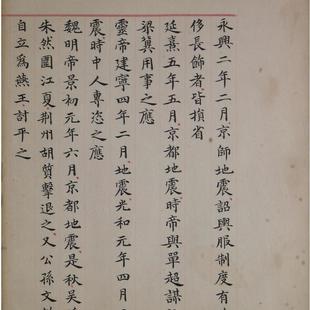 永興二年二月京師地震詔輿服制度有
侈長飾者皆損省
延熹五年五月京都地震時帝與單超謀
梁冀用事之應
靈帝建寧四年二月地震光和元年四月
震時中人專恣之應
魏明帝景初元年六月京都地震是秋吳
朱然圍江夏荆州胡質擊退之又公孫文
自立爲燕王討平之